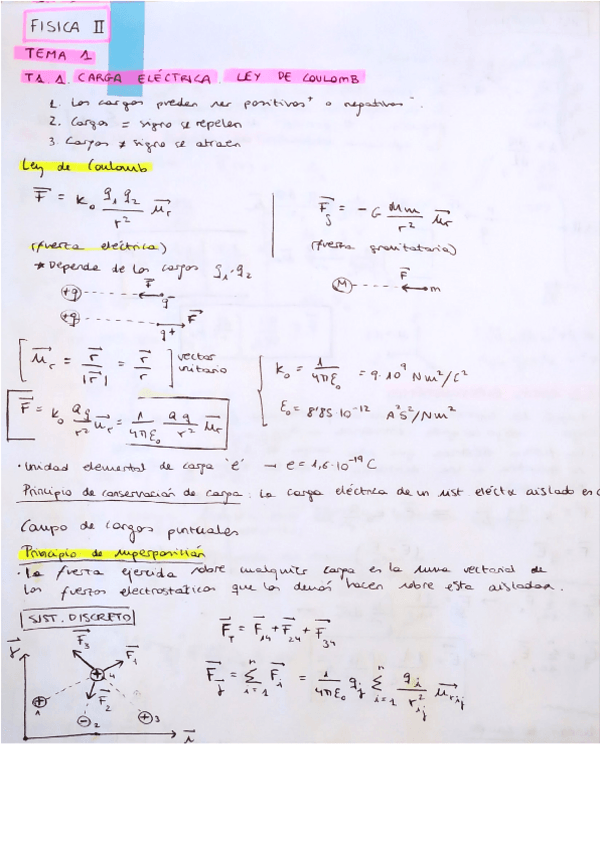 FISICA II
TEMA 1
T1.1. CARGA ELÉCTRICA. LEY DE COULOMB
1. Las cargas pueden ser positivas⁺ o negativas⁻.
2. Cargas = signo se repelen
3. Cargas ≠ signo se atraen
Ley de Coulomb
F⃗ = K₀ q₁ q₂ / r² u⃗ᵣ
F⃗g = - G Mm / r² u⃗ᵣ
(fuerza eléctrica)
(fuerza gravitatoria)
* Depende de las cargas q₁·q₂
+q F⃗ q⁻
+q q+ F⃗
M F⃗ m
u⃗ᵣ = r⃗ / |r⃗| = r⃗ / r
vector unitario
K₀ = 1 / 4πε₀ = 9·10⁹ Nm²/C²
ε₀ = 8'85·10⁻¹² A²S²/Nm²
F⃗ = K₀ Qq / r² u⃗ᵣ = 1 / 4πε₀ Qq / r² u⃗ᵣ
· Unidad elemental de carga 'e' → e = 1,6·10⁻¹⁹ C
Principio de conservación de carga: La carga eléctrica de un sist. eléctr aislado es
Campo de cargas puntuales
Principio de superposición
· La fuerza ejercida sobre cualquier carga es la suma vectorial de
las fuerzas electrostáticas que las demás hacen sobre esta aisladas.
SIST. DISCRETO
F⃗T = F⃗14 + F⃗24 + F⃗34
F⃗j = Σ i=1 n F⃗i = 1 / 4πε₀ qj Σ i=1 n qi / r²ij u⃗rij
j⃗ F⃗3 F⃗1 + 4
F⃗2
+ 1
- 2
+ 3
i⃗